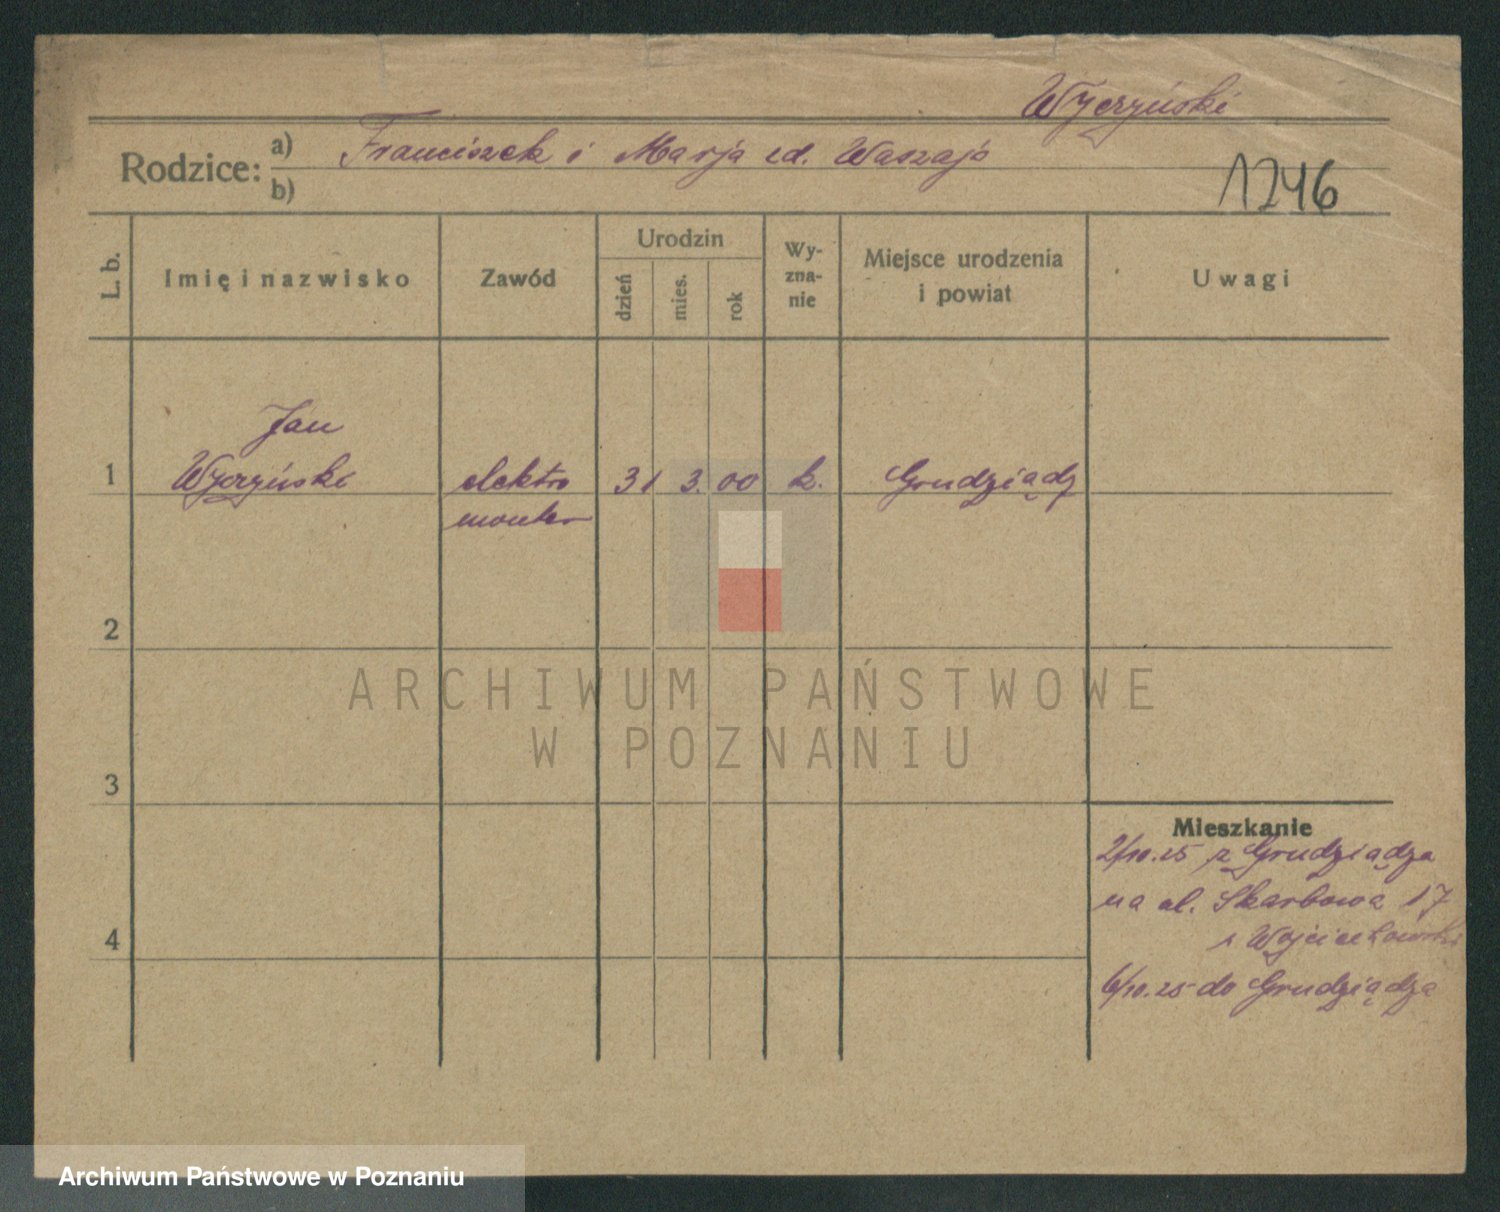 Wyczyński
Rodzice: a) Franciszek i Marja zd. Waszaja
b)
1246
L. b.
Imię i nazwisko
Zawód
Urodzin
dzień
mies.
rok
Wy-
zna-
nie
Miejsce urodzenia
i powiat
Uwagi
Jan
1 Wyczyński elektro 31 3. 00 k. Grudziądz
monter
2
3
4
Mieszkanie
2/10.25 z Grudziądza
na ul. Skarbowa 17
Wojciechowski
6/10.25 do Grudziądza
ARCHIWUM PAŃSTWOWE
W POZNANIU
Archiwum Państwowe w Poznaniu